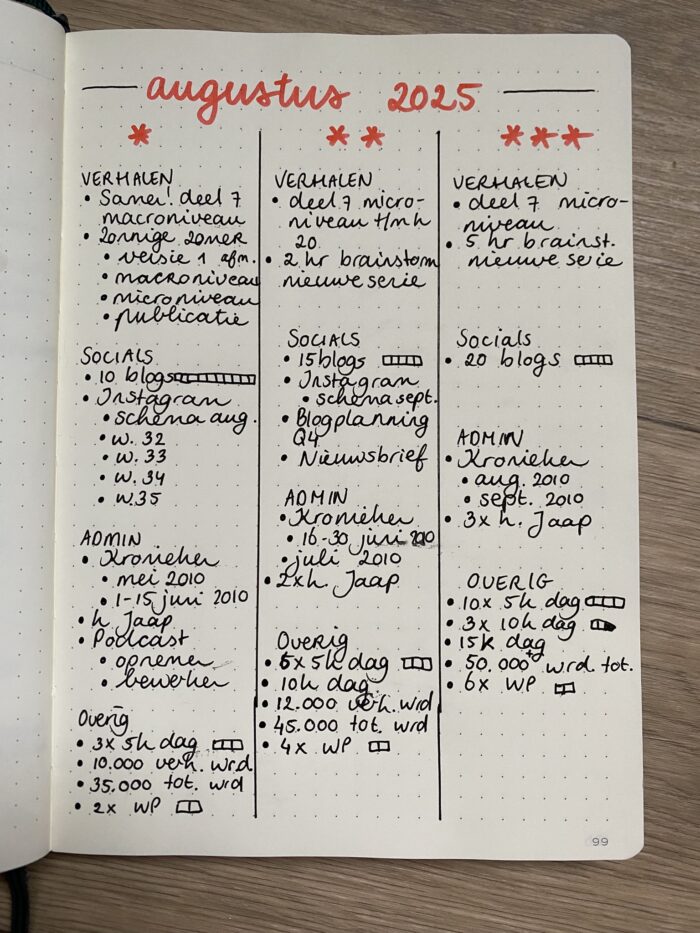 augustus 2025
*
VERHALEN
• Samen! deel 7
macroniveau
• Zonnige zomer
• versie 1 afm.
• macroniveau
• microniveau
• publicatie
SOCIALS
• 10 blogs
• Instagram
• schema aug.
• w. 32
• w. 33
• w. 34
• w. 35
ADMIN
• Kronieken
• mei 2010
• 1-15 juni 2010
• h Jaap
• Podcast
• opnemen
• bewerken
Overig
• 3x 5k dag
• 10.000 verh. wrd
• 35.000 tot. wrd
• 2x WP
* *
VERHALEN
• deel 7 micro-
niveau t/m h
20
• 2 hr brainstorm
nieuwe serie
SOCIALS
• 15 blogs
• Instagram
• schema sept.
• Blogplanning
Q4
• Nieuwsbrief
ADMIN
• Kronieken
• 16-30 juni 2010
• juli 2010
• 2x h. Jaap
Overig
• 5x 5k dag
• 10k dag
• 12.000 verh. wrd
• 45.000 tot. wrd
• 4x WP
* * *
VERHALEN
• deel 7 micro-
niveau
• 5 hr brainst.
nieuwe serie
Socials
• 20 blogs
ADMIN
• Kronieken
• aug. 2010
• sept. 2010
• 3x h. Jaap
OVERIG
• 10x 5k dag
• 3x 10k dag
• 15k dag
• 50.000+ wrd. tot.
• 6x WP
99